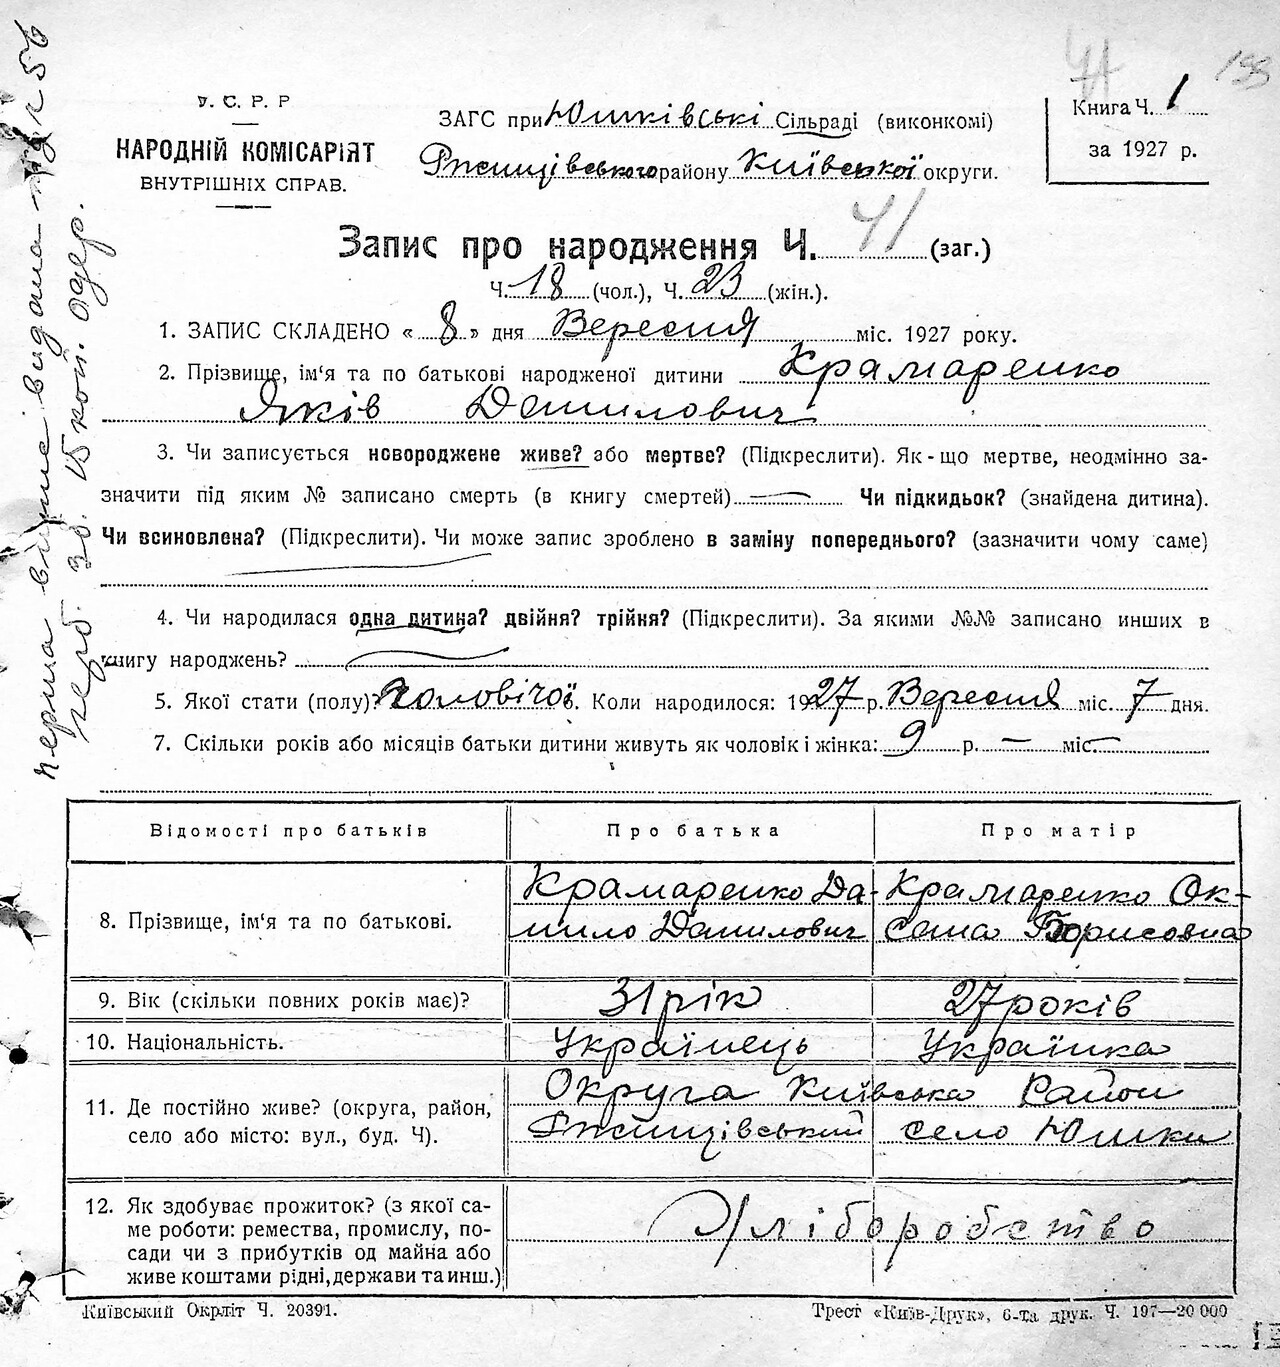 У. С. Р. Р
НАРОДНІЙ КОМІСАРІЯТ
ВНУТРІШНІХ СПРАВ.
ЗАГС при Юшківські Сільраді (виконкомі)
Ржищівського району Київської округи.
Книга Ч. 1
за 1927 р.
Запис про народження Ч. 41 (заг.)
Ч. 18 (чол.), Ч. 23 (жін.).
1. ЗАПИС СКЛАДЕНО « 8 » дня Вересня міс. 1927 року.
2. Прізвище, ім‘я та по батькові народженої дитини Крамаренко
Яків Данилович
3. Чи записується новороджене живе? або мертве? (Підкреслити). Як-що мертве, неодмінно за-
значити під яким № записано смерть (в книгу смертей) — Чи підкидьок? (знайдена дитина).
Чи всиновлена? (Підкреслити). Чи може запис зроблено в заміну попереднього? (зазначити чому саме)
4. Чи народилася одна дитина? двійня? трійня? (Підкреслити). За якими №№ записано инших в
книгу народжень?
5. Якої стати (полу)? Чоловічої. Коли народилося: 1927 р. Вересня міс. 7 дня.
7. Скільки років або місяців батьки дитини живуть як чоловік і жінка: 9 р. — міс. —
Відомості про батьків
Про батька
Про матір
8. Прізвище, ім‘я та по батькові.
Крамаренко Да-
нило Данилович
Крамаренко Ок-
сана Борисовна
9. Вік (скільки повних років має)?
31 рік
27 років
10. Національність.
Українець
Українка
11. Де постійно живе? (округа, район,
село або місто: вул., буд. Ч).
Округа Київська Район
Ржищівський село Юшки
12. Як здобуває прожиток? (з якої са-
ме роботи: ремества, промислу, по-
сади чи з прибутків од майна або
живе коштами рідні, держави та инш.)
Хліборобство
Київський Окрліт Ч. 20391.
Трест «Київ-Друк», 6-та друк. Ч. 197—20 000
перша випис видана
герб. зб. 15 коп. одер.